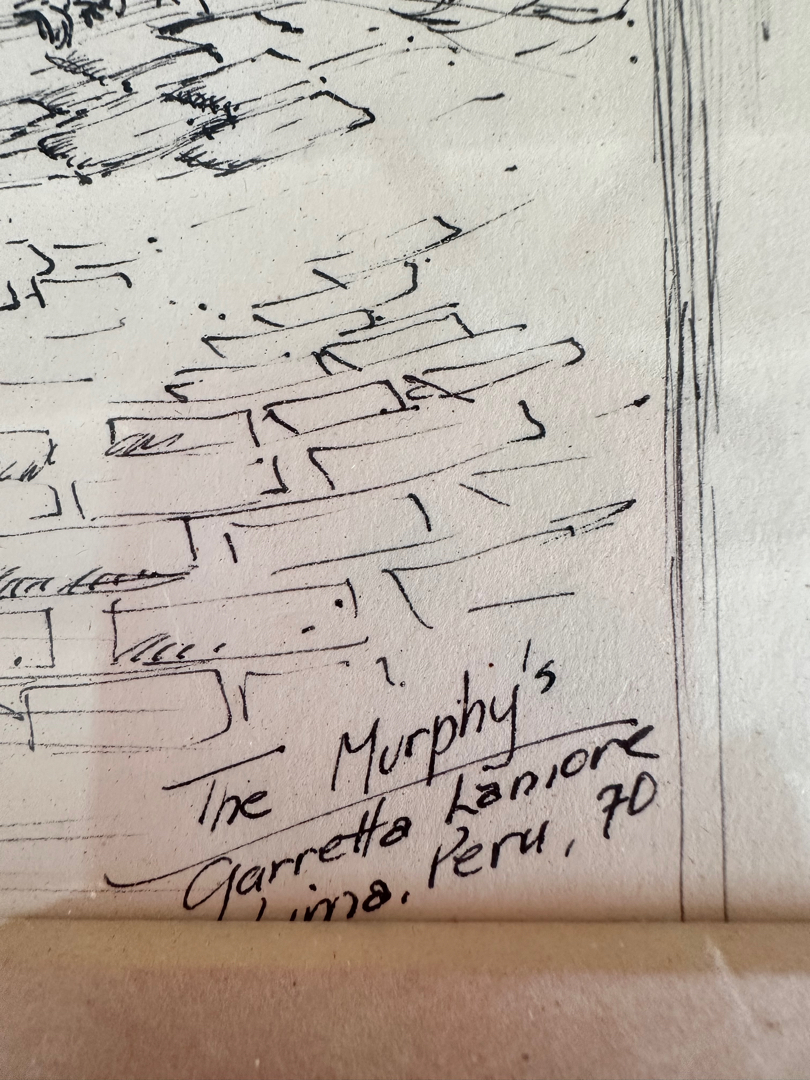 The Murphy's
Garretta Lamore
Lima, Peru, 70